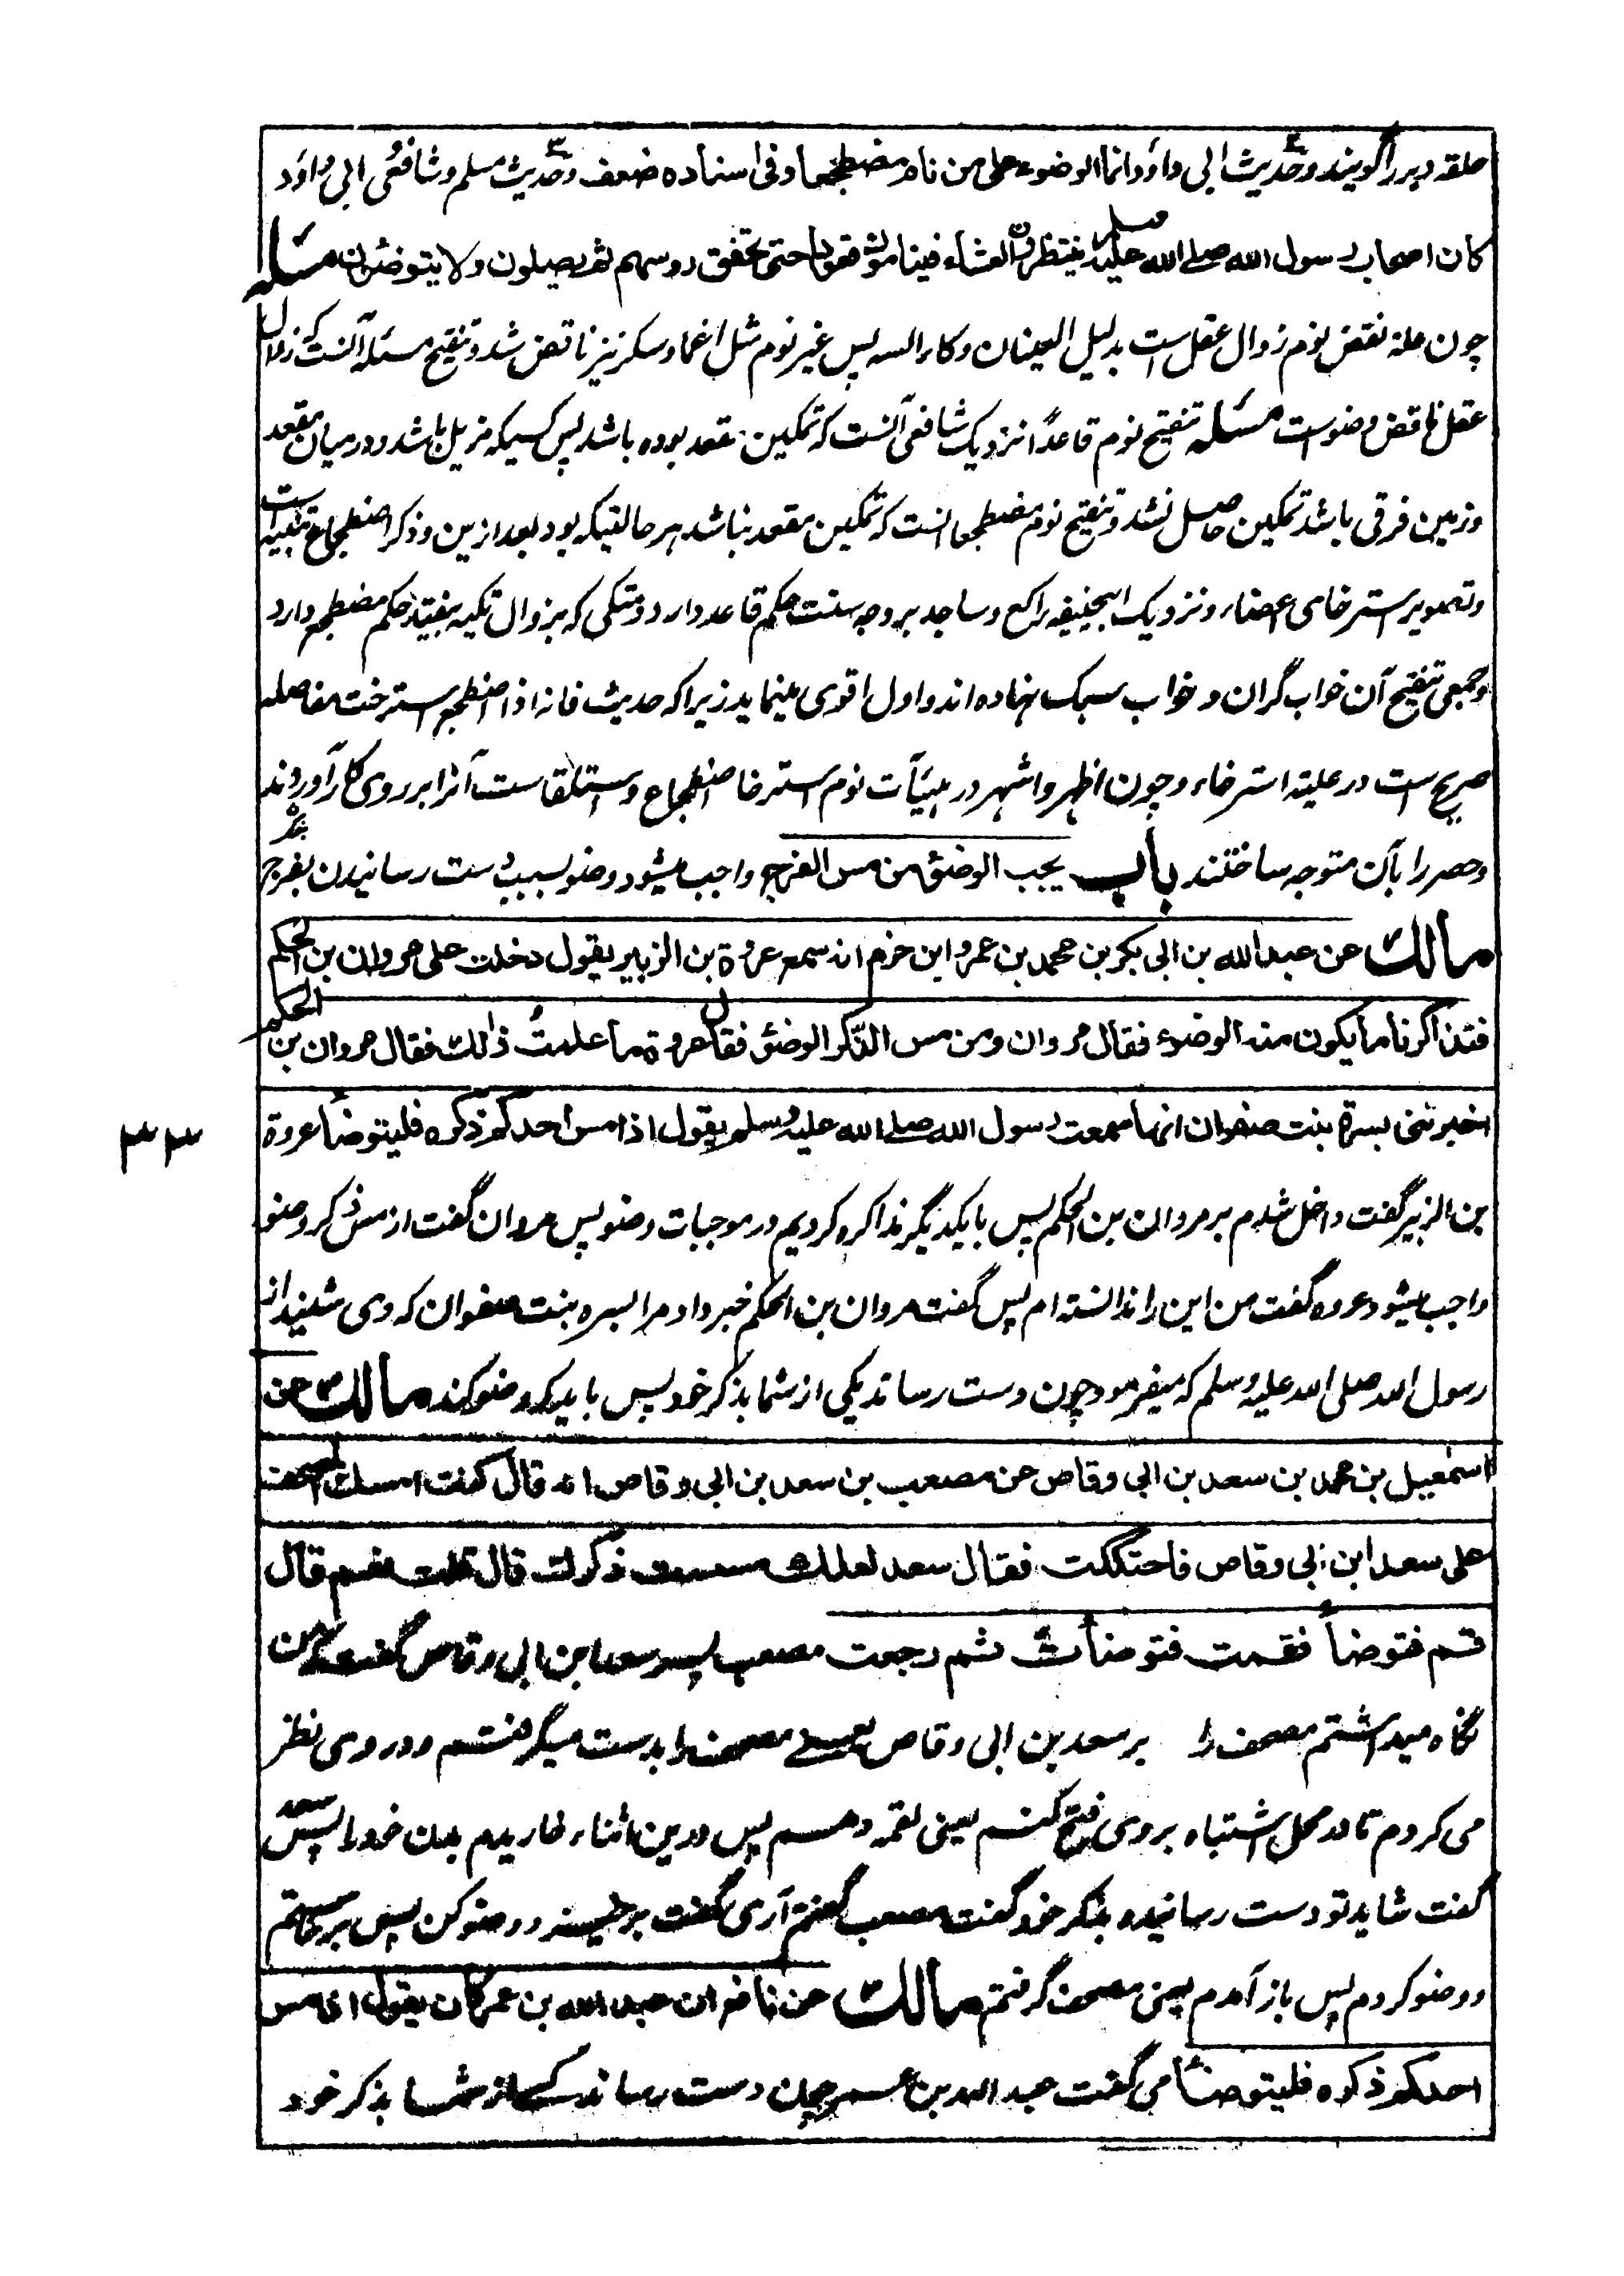 حلقه دبر را گویند و حدیث ابی داؤد انما الوضوء علی من نام مضطجعا و فی اسناده ضعف و حدیث مسلم و شافعی ابی داؤد
کان اصحاب رسول الله صلے الله علیه وسلم ینتظرون العشاء فینامون قعودا حتی تخفق روسهم ثم یصلون ولا یتوضئون مسئله
چون علة نقض نوم زوال عقل است بدلیل العینان وکاء السه پس غیر نوم مثل اغما و سکر نیز ناقض شد و تنقیح مسئله آنست که زوال
عقل ناقض وضوست مسئله تنقیح نوم قاعداً نزدیک شافعی آنست که تمکین مقعد بوده باشد پس کسیکه هزیل باشد و در میان مقعد
و زمین فرقی باشد تمکین حاصل نشد و تنقیح نوم مضطجعا انست که تمکین مقعد نباشد بهر حالتیکه بود بعد ازین و ذکر اضطجاع تنبیه است
و تصویر استرخای اعضاء و نزدیک ابیحنیفه راکع و ساجد بر وجه سنت حکم قاعد دارد و متکی که بزوال تکیه بیفتد حکم مضطجع دارد
و جمعی تنقیح آن خواب گران و خواب سبک نهاده اند و اول اقوی مینماید زیرا که حدیث فانه اذا اضطجع استرخت مفاصله
صریح است در علیة استرخاء و چون اظهر و اشهر در هیئات نوم استرخا اضطجاع و استلقاست آنرا بر روی کار آوردند
و حصر را بآن متوجه ساختند باب یجب الوضوء من مس الفرج واجب میشود وضو بسبب دست رسانیدن بفرج
مالك عن عبد الله بن ابی بکر بن محمد بن عمرو ابن حزم انه سمع عروة بن الزبیر یقول دخلت علی مروان بن الحکم
فتذاکرنا ما یکون منه الوضوء فقال مروان ومن مس الذکر الوضوء فقال عروة ما علمتُ ذالك فقال مروان بن الحکم
اخبرتنی بسرة بنت صفوان انها سمعت رسول الله صلے الله علیه وسلم یقول اذا مس احدکم ذکره فلیتوضأ عروة
بن الزبیر گفت داخل شدم بر مروان بن الحکم پس بایکدیگر مذاکره کردیم در موجبات وضو پس مروان گفت از مس ذکر وضو
واجب میشود عروه گفت من این را ندانسته ام پس گفت مروان بن الحکم خبر داد مرا بسره بنت صفوان که وی شنید از
رسول الله صلی الله علیه وسلم که میفرمود چون دست رساند یکی از شما بذکر خود پس باید که وضو کند مالك عن
اسمٰعیل بن محمد بن سعد بن ابی وقاص عن مصعب بن سعد بن ابی وقاص انه قال کنت امسك المصحف
علی سعد ابن ابی وقاص فاحتککت فقال سعد لعلك مسست ذکرك قال قلت نعم قال
قم فتوضأ فقمت فتوضأت ثم رجعت مصعب پسر سعد ابن ابی وقاص گفت که من
نگاه میداشتم مصحف را بر سعد بن ابی وقاص یعنے مصحف را بدست میگرفتم و در وی نظر
می کردم تا در محل اشتباه بر وی فتح کنم یعنی لقمه دهم پس درین اثناء خاریدم بدن خود را پس سعد
گفت شاید تو دست رسانیده بذکر خود گفت مصعب گفتم آری گفت برخیز و وضو کن پس برخاستم
و وضو کردم پس باز آمدم یعنی مصحف گرفتم مالك عن نافع ان عبد الله بن عمر کان یقول اذا مس
احدکم ذکره فلیتوضأ می گفت عبد الله بن عمر چون دست رساند کسے از شما بذکر خود
۳۳